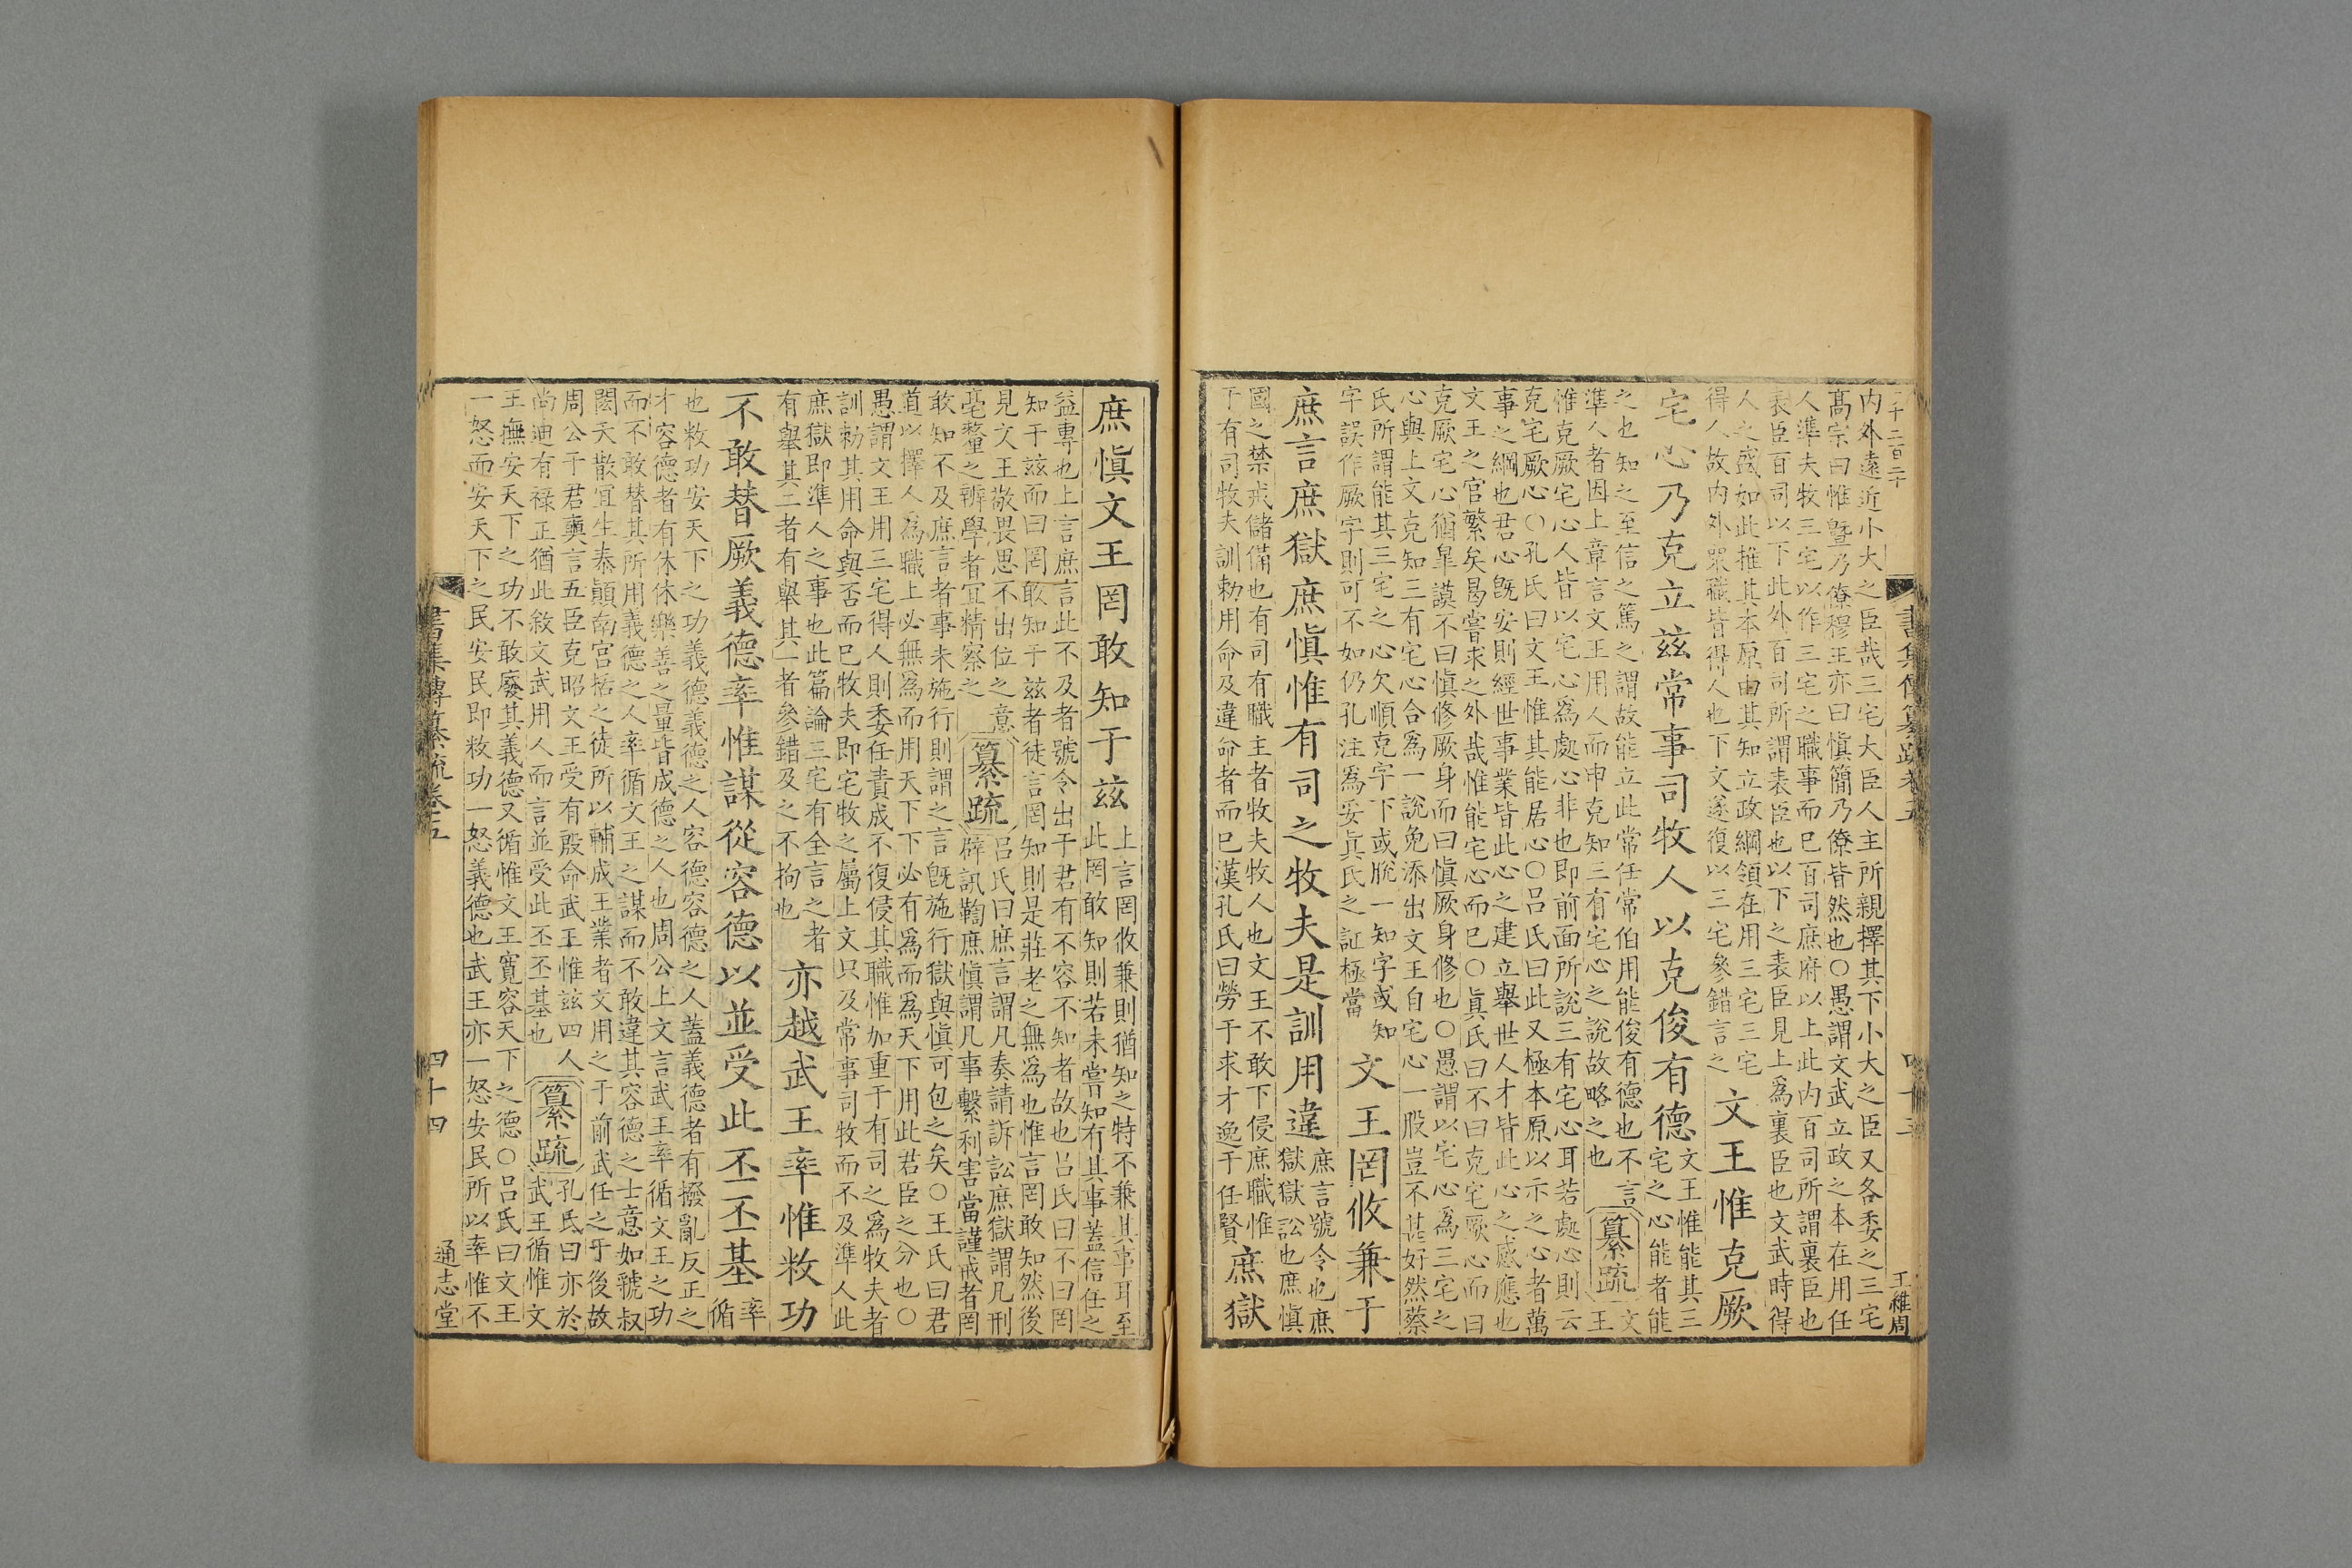 二千二百二十
書集傳纂疏卷五
四十三
王稚周
内外遠近小大之臣哉三宅大臣人主所親擇其下小大之臣又各委之三宅
高宗曰惟曁乃僚穆王亦曰愼簡乃僚皆然也○愚謂文武立政之本在用任
人準夫牧三宅以作三宅之職事而已百司庶府以上此内百司所謂裏臣也
表臣百司以下此外百司所謂表臣也以下之表臣見上爲裏臣也文武時得
人之盛如此推其本原由其知立政綱領在用三宅三宅
得人故内外眾職皆得人也下文遂復以三宅參錯言之
文王惟克厥
宅心乃克立兹常事司牧人以克俊有德
文王惟能其三
宅之心能者能
之也知之至信之篤之謂故能立此常任常伯用能俊有德也不言
準人者因上章言文王用人而申克知三有宅心之說故略之也
纂疏
文
王
惟克厥宅心人皆以宅心爲處心非也即前面所說三有宅心耳若處心則云
克宅厥心○孔氏曰文王惟其能居心○呂氏曰此又極本原以示之心者萬
事之綱也君心旣安則經世事業皆此心之建立舉世人才皆此心之感應也
文王之官繁矣曷嘗求之外哉惟能宅心而已○眞氏曰不曰克宅厥心而曰
克厥宅心猶臯謨不曰愼修厥身而曰愼厥身修也○愚謂以宅心爲三宅之
心與上文克知三有宅心合爲一說免添出文王自宅心一股豈不甚好然蔡
氏所謂能其三宅之心欠順克字下或脫一知字或知
字誤作厥字則可不如仍孔注爲妥眞氏之証極當
文王罔攸兼于
庶言庶獄庶愼惟有司之牧夫是訓用違
庶言號令也庶
獄獄訟也庶愼
國之禁戒儲備也有司有職主者牧夫牧人也文王不敢下侵庶職惟
于有司牧夫訓勅用命及違命者而已漢孔氏曰勞于求才逸于任賢
庶獄
庶愼文王罔敢知于兹
上言罔攸兼則猶知之特不兼其事耳至
此罔敢知則若未嘗知有其事蓋信任之
益專也上言庶言此不及者號令出于君有不容不知者故也呂氏曰不曰罔
知于兹而曰罔敢知于兹者徒言罔知則是莊老之無爲也惟言罔敢知然後
見文王敬畏思不出位之意
毫釐之辨學者宜精察之
纂疏
呂氏曰庶言謂凡奏請訴訟庶獄謂凡刑
辟訊鞫庶愼謂凡事繫利害當謹戒者罔
敢知不及庶言者事未施行則謂之言旣施行獄與愼可包之矣○王氏曰君
道以擇人爲職上必無爲而用天下下必有爲而爲天下用此君臣之分也○
愚謂文王用三宅得人則委任責成不復侵其職惟加重于有司之爲牧夫者
訓勅其用命與否而已牧夫即宅牧之屬上文只及常事司牧而不及準人此
庶獄即準人之事也此篇論三宅有全言之者
有舉其二者有舉其一者參錯及之不拘也
亦越武王率惟敉功
不敢替厥義德率惟謀從容德以並受此丕丕基
率
循
也敉功安天下之功義德義德之人容德容德之人蓋義德者有撥亂反正之
才容德者有休休樂善之量皆成德之人也周公上文言武王率循文王之功
而不敢替其所用義德之人率循文王之謀而不敢違其容德之士意如虢叔
閎夭散宜生泰顚南宮括之徒所以輔成王業者文用之于前武任之于後故
周公于君奭言五臣克昭文王受有殷命武王惟兹四人
尚迪有祿正猶此敘文武用人而言並受此丕丕基也
纂疏
孔氏曰亦於
武王循惟文
王撫安天下之功不敢廢其義德又循惟文王寬容天下之德○呂氏曰文王
一怒而安天下之民安民即敉功一怒義德也武王亦一怒安民所以率惟不
書集傳纂疏卷五
四十四
通志堂